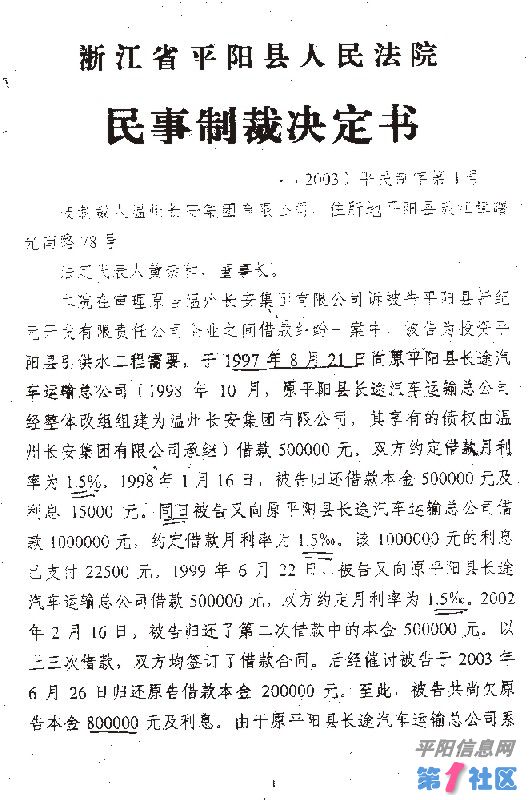 浙江省平阳县人民法院
民事制裁决定书
(2003)平民制字第1号
被制裁人温州长安集团有限公司，住所地平阳县
路78号
法定代表人黄，董事长。
本院在审理原告温州长安集团有限公司诉被告平阳县新纪
元开发有限责任公司企业之间借款纠纷一案中，被告为投资平
阳县引供水工程需要，于1997年8月21日向原平阳县长途汽
车运输总公司（1998 年 10 月，原平阳县长途汽车运输总公司
经整体改组组建为温州长安集团有限公司，其享有的债权由温
州长安集团有限公司承继）借款 500000 元，双方约定借款月利
率为 1.5%。1998 年 1 月 16 日，被告归还借款本金 500000 元及
利息 15000 元。同日被告又向原平阳县长途汽车运输总公司借
款 1000000 元，约定借款月利率为 1.5‰。该 1000000 元的利息
已支付 22500 元。1999 年 6 月 22 日，被告又向原平阳县长途
汽车运输总公司借款 500000 元，双方约定月利率为 1.5‰。2002
年 2 月 16 日，被告归还了第二次借款中的本金 500000 元。以
上三次借款，双方均签订了借款合同。后经催讨被告于 2003 年
6 月 26 日归还原告借款本金 200000 元。至此，被告共尚欠原
告本金 800000 元及利息。由于原平阳县长途汽车运输总公司系
平阳信息网
第1社区
1